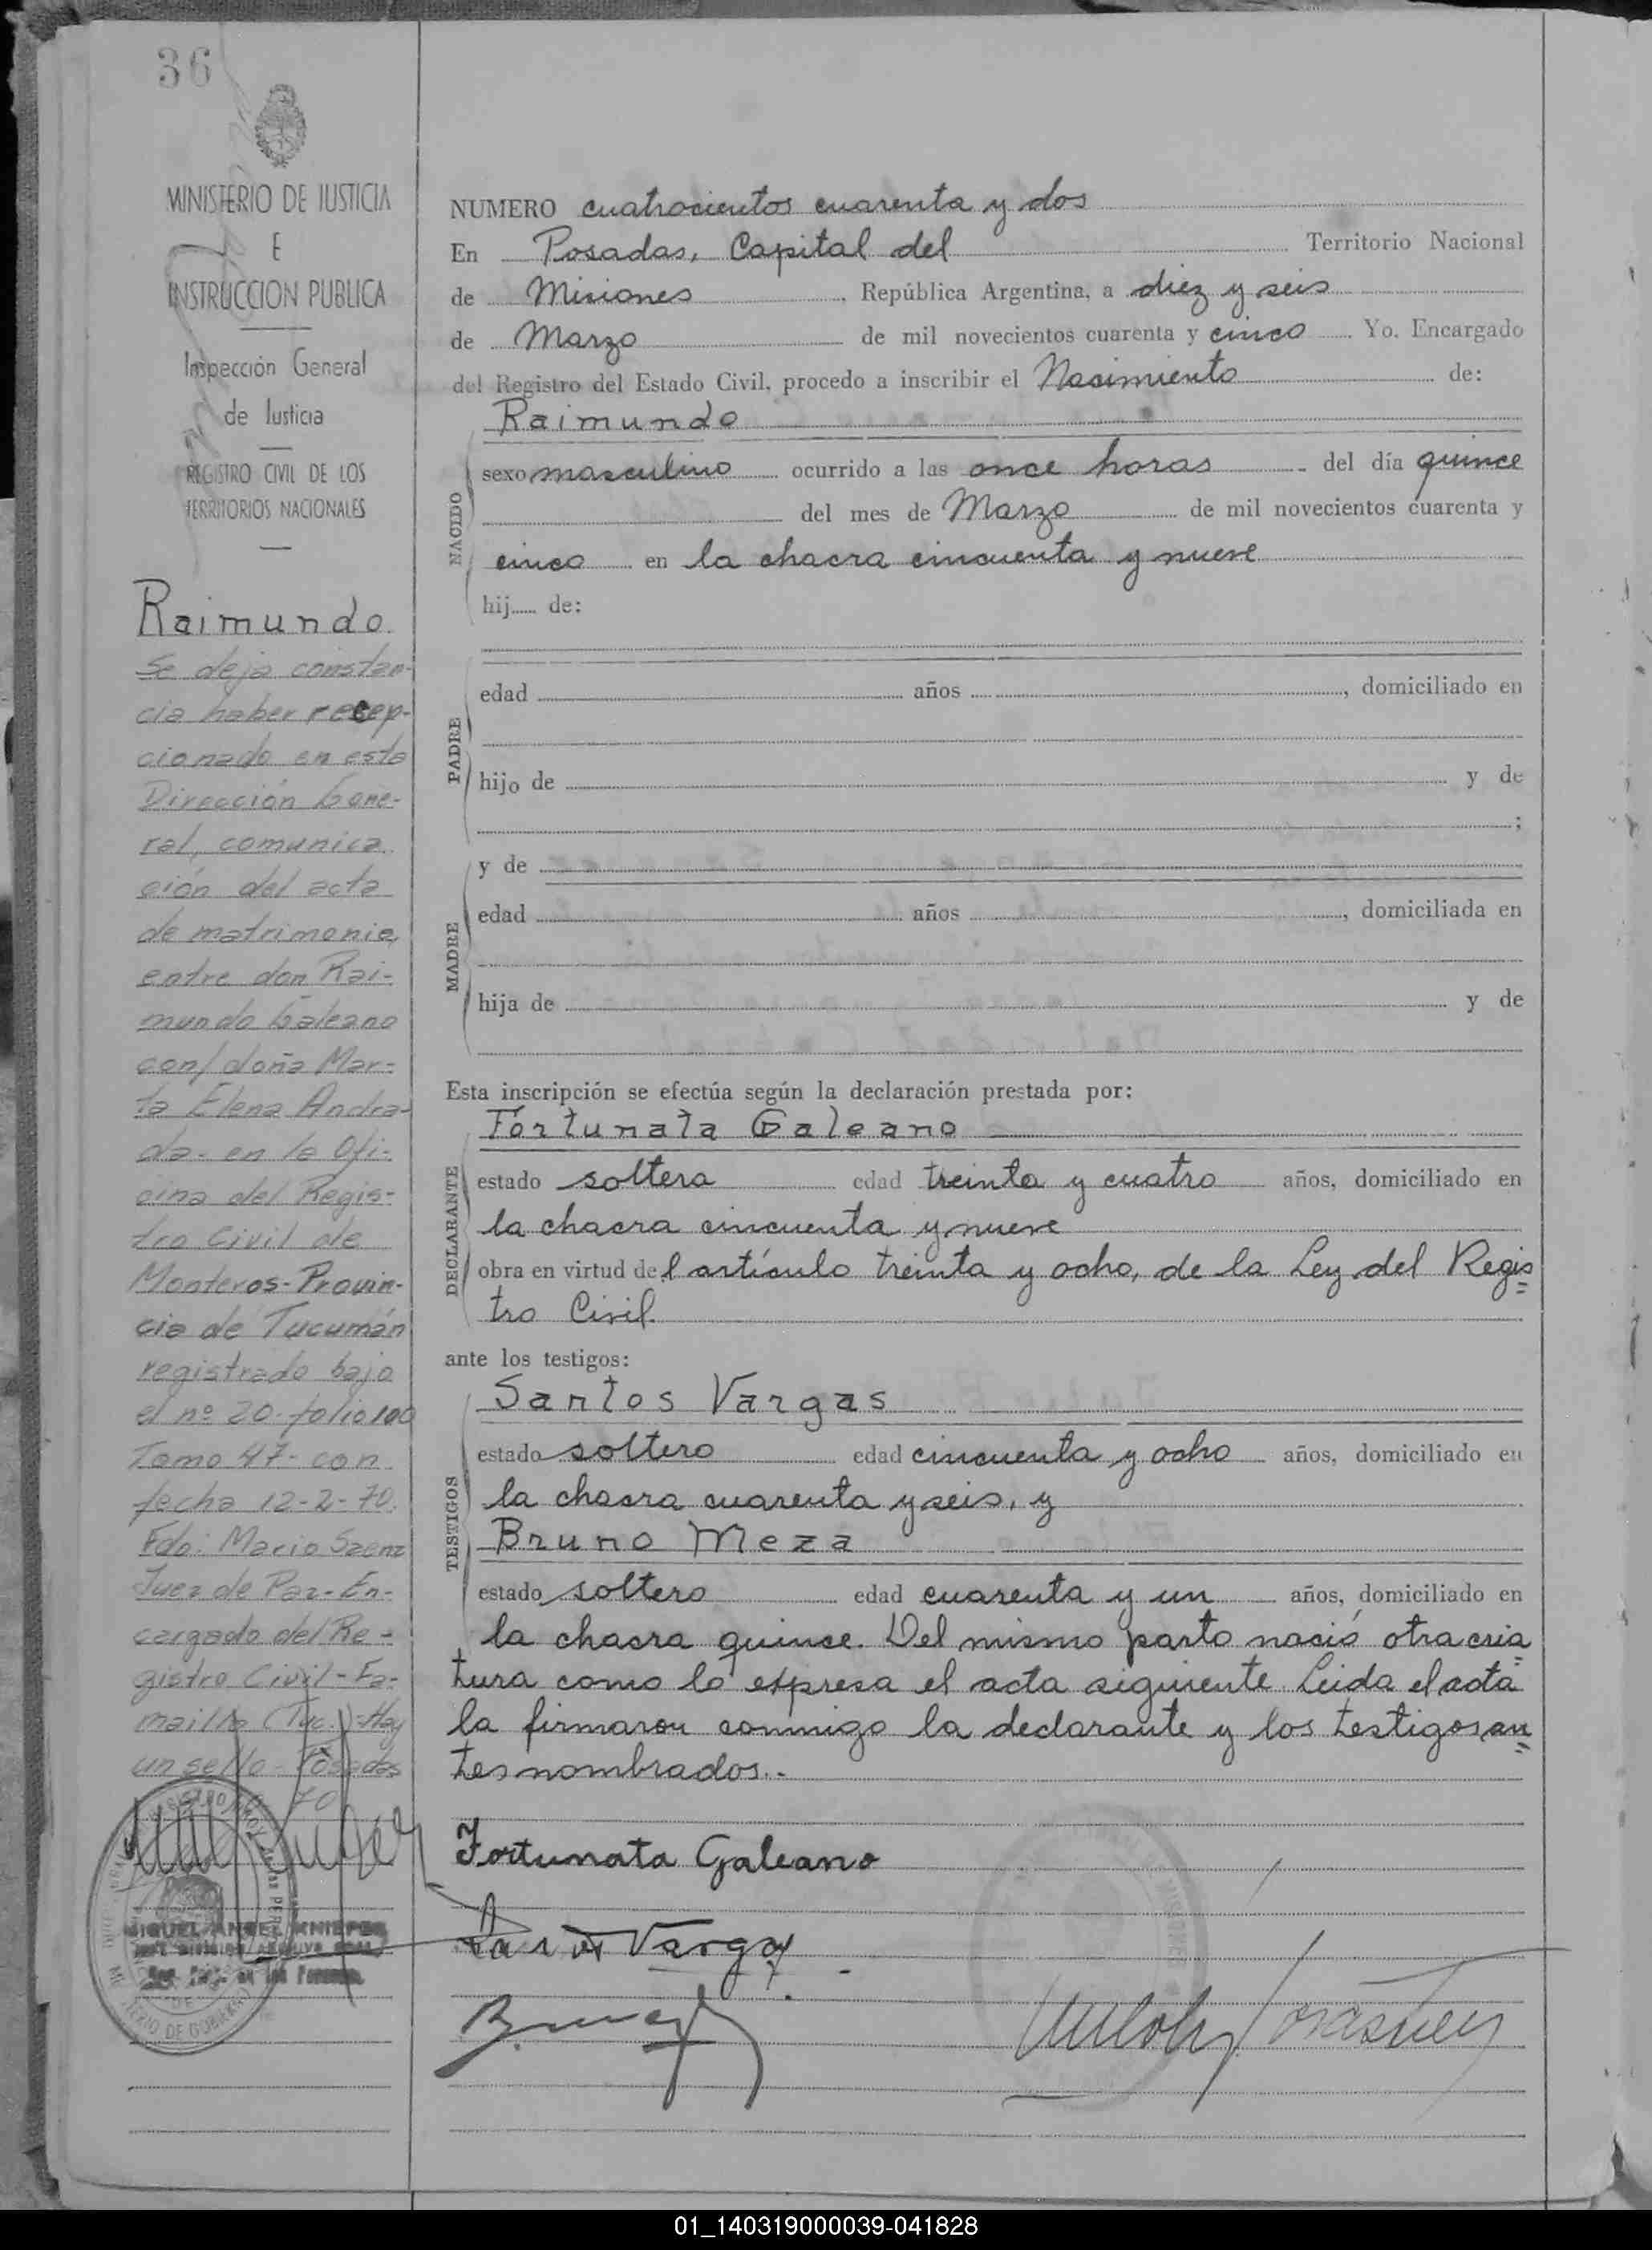 36
MINISTERIO DE JUSTICIA
E
INSTRUCCION PUBLICA
Inspección General
de Justicia
REGISTRO CIVIL DE LOS
TERRITORIOS NACIONALES
Raimundo.
Se deja constan-
cia haber recep-
cionado en esta
Dirección Gene-
ral, comunica
ción del acta
de matrimonio,
entre don Rai-
mundo Galeano
con/ doña Mar-
ta Elena Andra-
da- en la Ofi-
cina del Regis-
tro Civil de
Monteros- Provin-
cia de Tucumán
registrado bajo
el nº 20- folio 100
Tomo 47- con
fecha 12-2-70.
Fdo: Mario Saenz
Juez de Paz- En-
cargado del Re-
gistro Civil- Fa-
mailla (Tuc.)- Hay
un sello- Posadas
70
NUMERO cuatrocientos cuarenta y dos
En Posadas, Capital del Territorio Nacional
de Misiones, República Argentina, a diez y seis
de Marzo de mil novecientos cuarenta y cinco Yo, Encargado
del Registro del Estado Civil, procedo a inscribir el Nacimiento de:
Raimundo
NACIDO
sexo masculino ocurrido a las once horas del día quince
del mes de Marzo de mil novecientos cuarenta y
cinco en la chacra cincuenta y nueve
hij de:
PADRE
edad años , domiciliado en
hijo de y de
;
y de
MADRE
edad años , domiciliada en
hija de y de
Esta inscripción se efectúa según la declaración prestada por:
Fortunata Galeano
DECLARANTE
estado soltera edad treinta y cuatro años, domiciliado en
la chacra cincuenta y nueve
obra en virtud del artículo treinta y ocho, de la Ley del Regis=
tro Civil.
ante los testigos:
Santos Vargas
TESTIGOS
estado soltero edad cincuenta y ocho años, domiciliado en
la chacra cuarenta y seis, y
Bruno Meza
estado soltero edad cuarenta y un años, domiciliado en
la chacra quince. Del mismo parto nació otra cria=
tura como lo expresa el acta siguiente. Leida el acta
la firmaron conmigo la declarante y los testigos an=
tes nombrados.-
Fortunata Galeano
Vargas
MIGUEL ANGEL
01_140319000039-041828